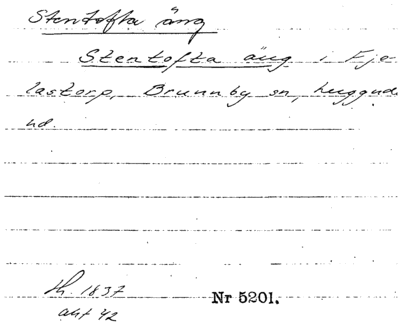 Stentofta äng
Stentofta äng i Fje-
lastorp, Brunnby sn, Luggude
hd.
Sk. 1837
akt 42
Nr 5201.